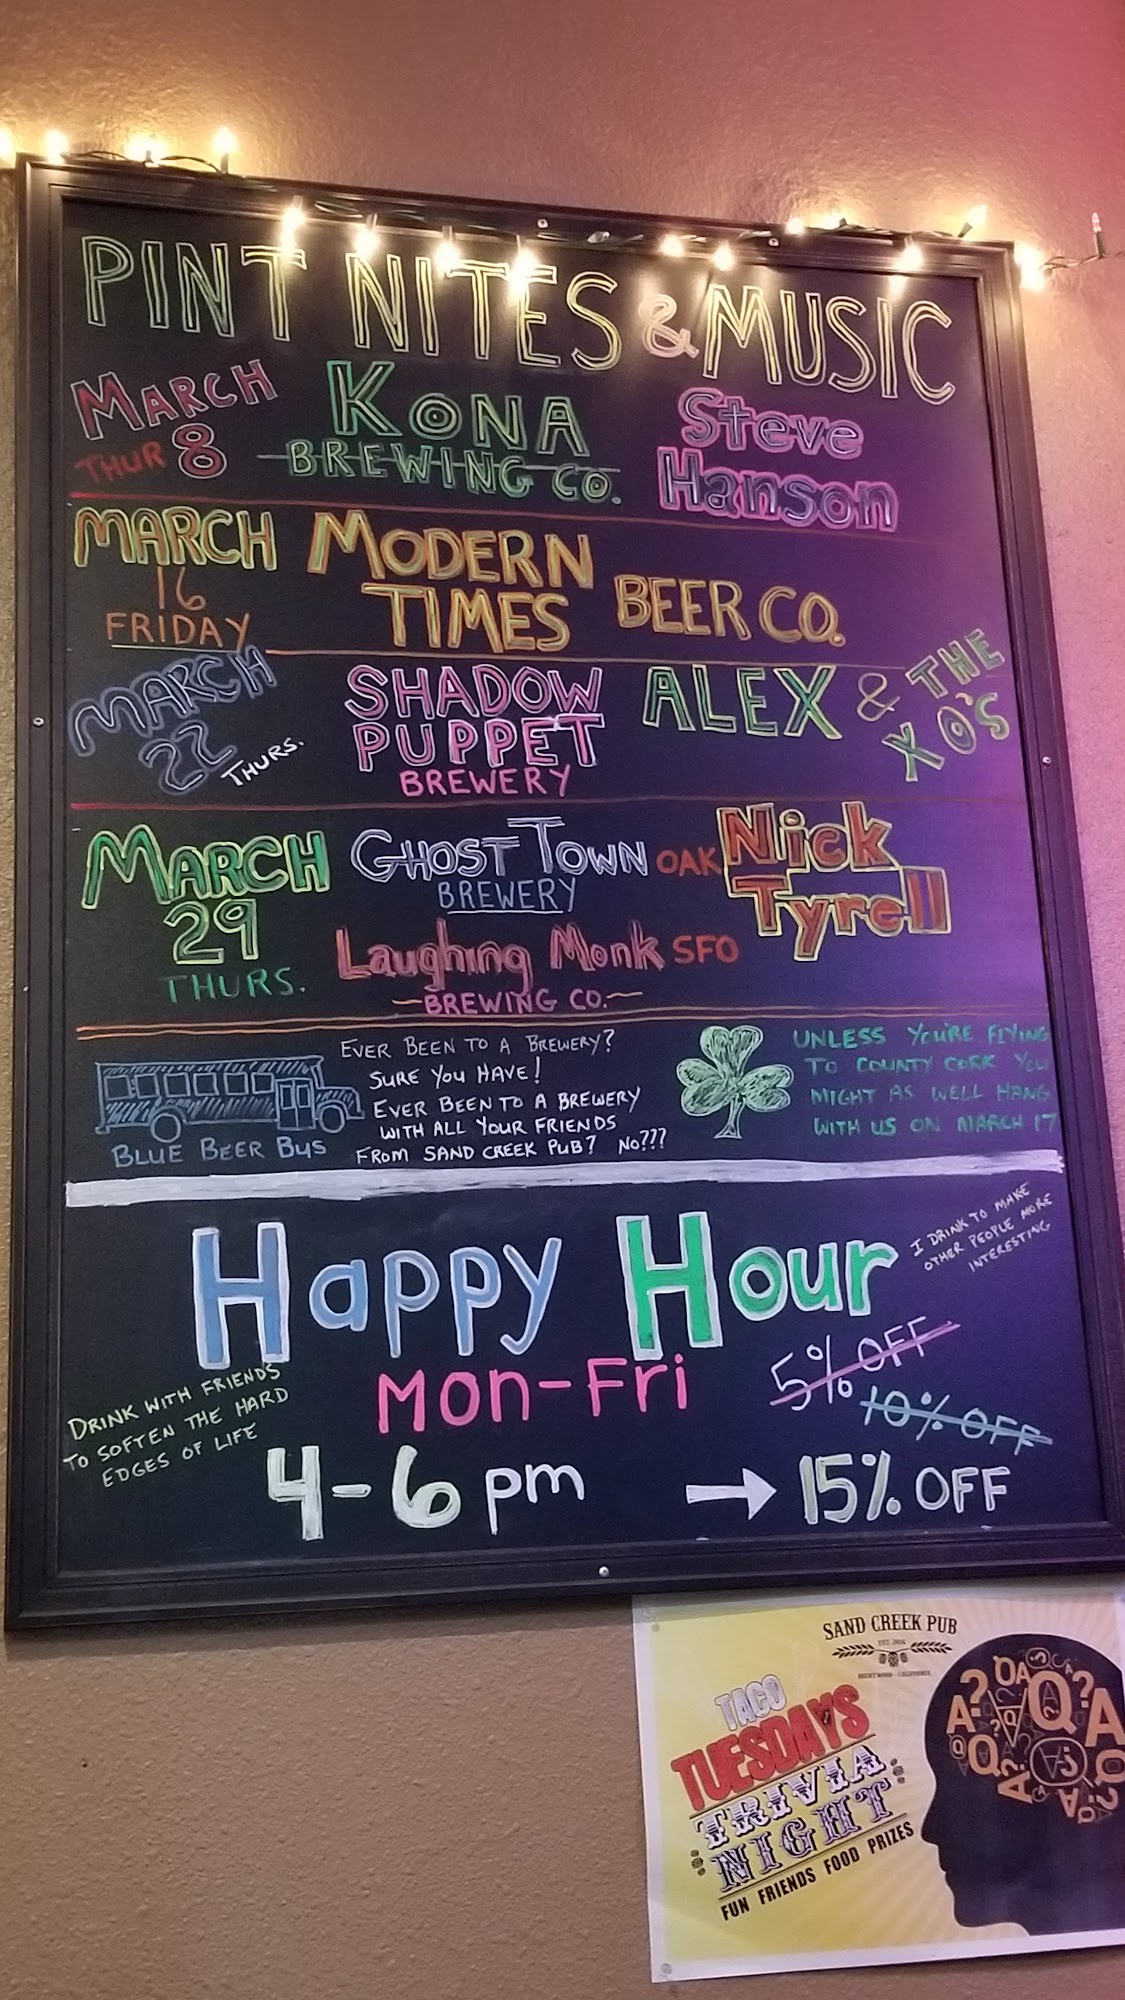 PINT NITES & MUSIC
MARCH
THUR 8
KONA
BREWING CO.
Steve
Hanson
MARCH
16
FRIDAY
MODERN
TIMES BEER CO.
MARCH
22
THURS.
SHADOW
PUPPET
BREWERY
ALEX & THE
XO'S
MARCH
29
THURS.
GHOST TOWN OAK
BREWERY
Laughing Monk SFO
BREWING CO.
Nick
Tyrell
BLUE BEER BUS
EVER BEEN TO A BREWERY?
SURE YOU HAVE!
EVER BEEN TO A BREWERY
WITH ALL YOUR FRIENDS
FROM SAND CREEK PUB? NO???
UNLESS YOU'RE FLYING
TO COUNTY CORK YOU
MIGHT AS WELL HANG
WITH US ON MARCH 17
Happy Hour
I DRINK TO MAKE
OTHER PEOPLE MORE
INTERESTING
MON-Fri
DRINK WITH FRIENDS
TO SOFTEN THE HARD
EDGES OF LIFE
4-6 pm
5% OFF
10% OFF
→ 15% OFF
SAND CREEK PUB
EST. 2016
BRENTWOOD - CALIFORNIA
TACO
TUESDAYS
TRIVIA
NIGHT
FUN FRIENDS FOOD PRIZES